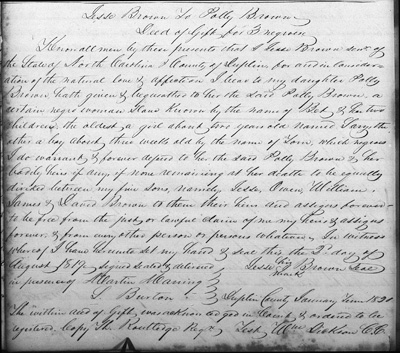 Jesse Brown To Polly Brown
Deed of Gift for 3 negroes
Know all men by these presents that I Jesse Brown senr of
the State of North Carolina & County of Duplin for and in consider-
ation of the natural love & affection I bear to my daughter Polly
Brown hath given & bequeather to her the said Polly Brown, a
certain negro woman slave known by the name of Bet, & her two
children, the oldest a girl about two years old named Tamy the
other a boy about three weeks old by the name of Tom, which negroes
I do warrant & forever defend to her the said Polly Brown & her
bodily heirs if any if none remaining at her death to be equally
divided between my five sons, namely Jesse, Owen, William
James & David Brown to them their heirs and assigns forever
to be free from the just or lawful claim of me my heirs & assigns
forever & from every other person or persons whatever. In witness
whereof I have hereunto set my hand & seal this the 3d day of
August 1819 signed sealed & delivered Jesse his mark Brown Seal
in presence of Martin Hanning
Burton
Duplin County January Term 1820
The within deed of Gift, was acknowledged in Court, & ordered to be
registered, Copy Tho Routledge Regr Test Wm Dickson CC